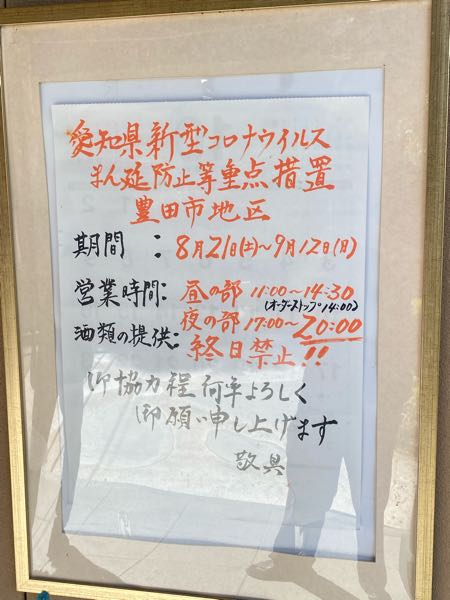 愛知県新型コロナウイルス
まん延防止等重点措置
豊田市地区
期間 : 8月21日(土)〜9月12日(日)
営業時間: 昼の部 11:00〜14:30
(オーダーストップ14:00)
夜の部 17:00〜20:00
酒類の提供: 終日禁止!!
御協力程何卒よろしく
御願い申し上げます
敬具